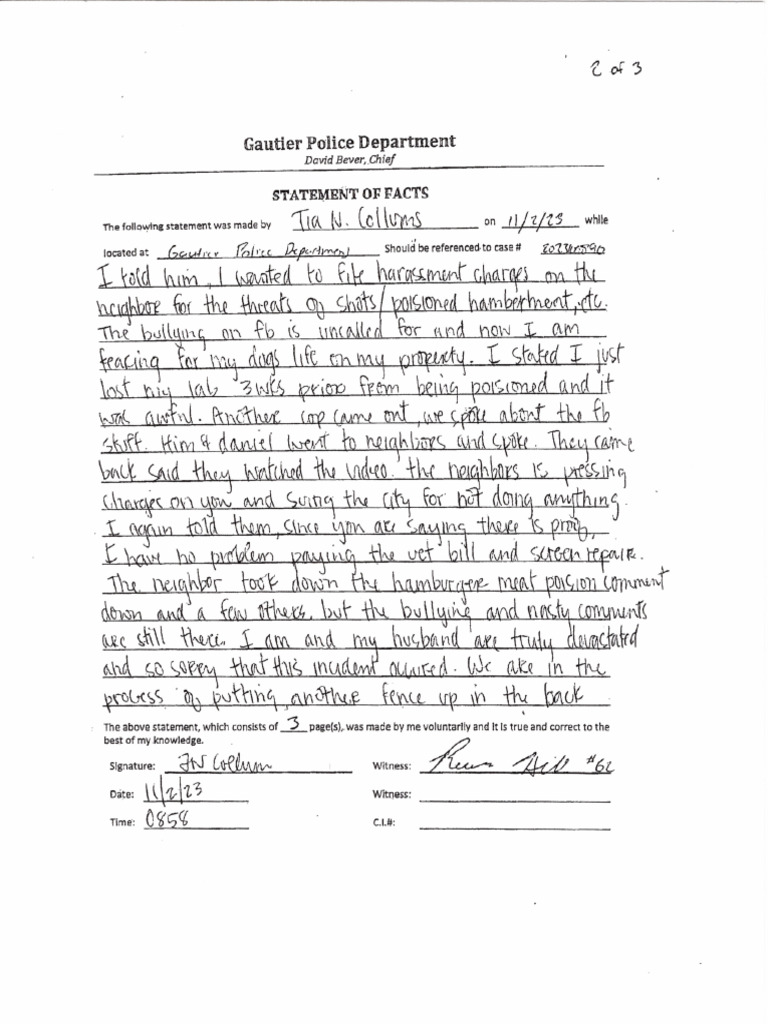 2 of 3
Gautier Police Department
David Bever, Chief
STATEMENT OF FACTS
The following statement was made by Tia N. Collums on 11/2/23 while
located at Gautier Police Department Should be referenced to case #
I told him, I wanted to file harassment charges on the
neighbor for the threats of shots/poisioned hamberment, etc.
The bullying on fb is uncalled for and now I am
fearing for my dogs life on my property. I stated I just
lost my lab 3wks prior from being poisioned and it
was awful. Another cop came out, we spoke about the fb
stuff. Him & daniel went to neighbors and spoke. They came
back said they watched the video. the neighbors is pressing
charges on you and suing the city for not doing anything.
I again told them, since you are saying there is proof,
I have no problem paying the vet bill and screen repair.
The neighbor took down the hamburger meat poision comment
down and a few others, but the bullying and nasty comments
are still there. I am and my husband are truly devastated
and so sorry that this incident occured. We are in the
process of putting another fence up in the back
The above statement, which consists of 3 page(s), was made by me voluntarily and it is true and correct to the
best of my knowledge.
Signature: TN Collum Witness: Hill #62
Date: 11/2/23 Witness:
Time: 0858 C.I.#: